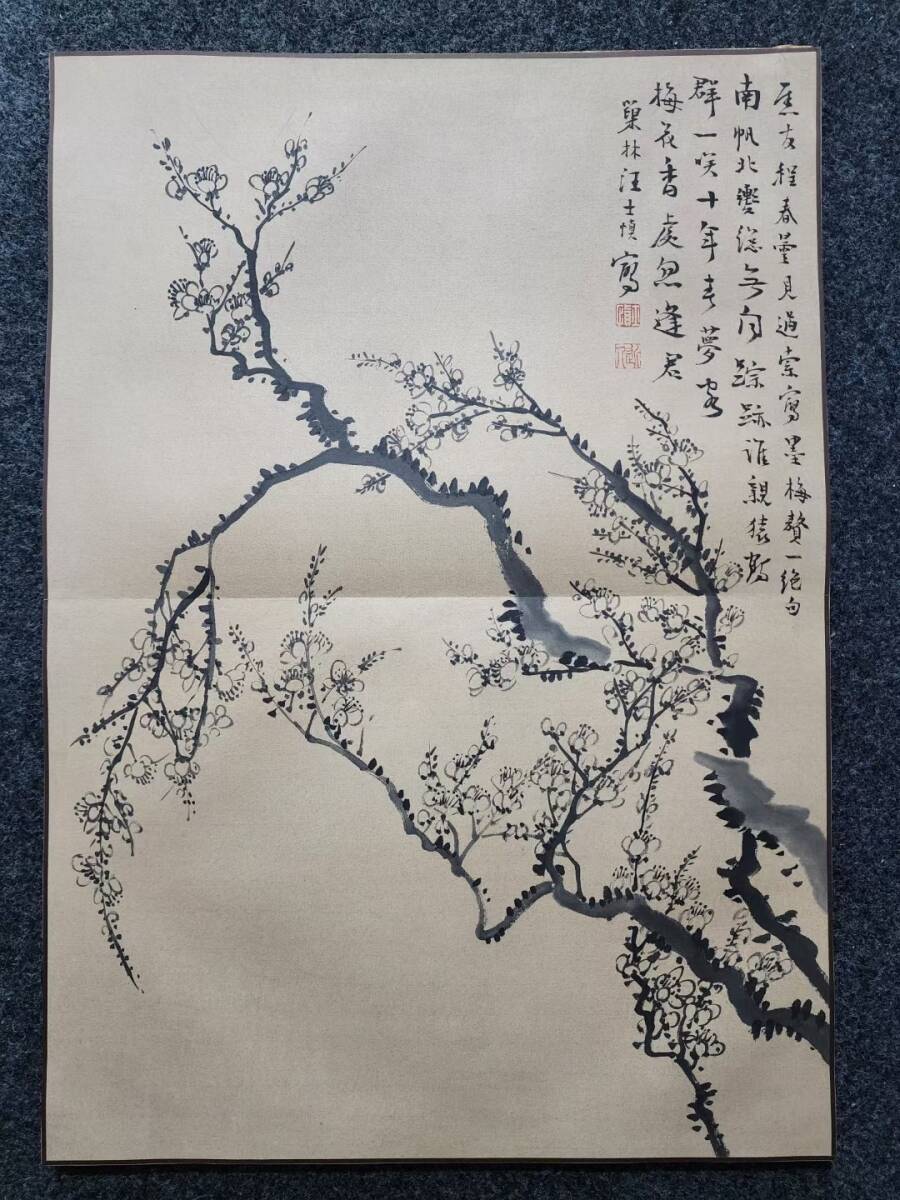 焦友程春曇見過索寫墨梅贅一絕句
南帆北轡總無定踪跡誰親猿鶴
群一笑十年春夢客
梅花香處忽逢君
巢林汪士慎寫